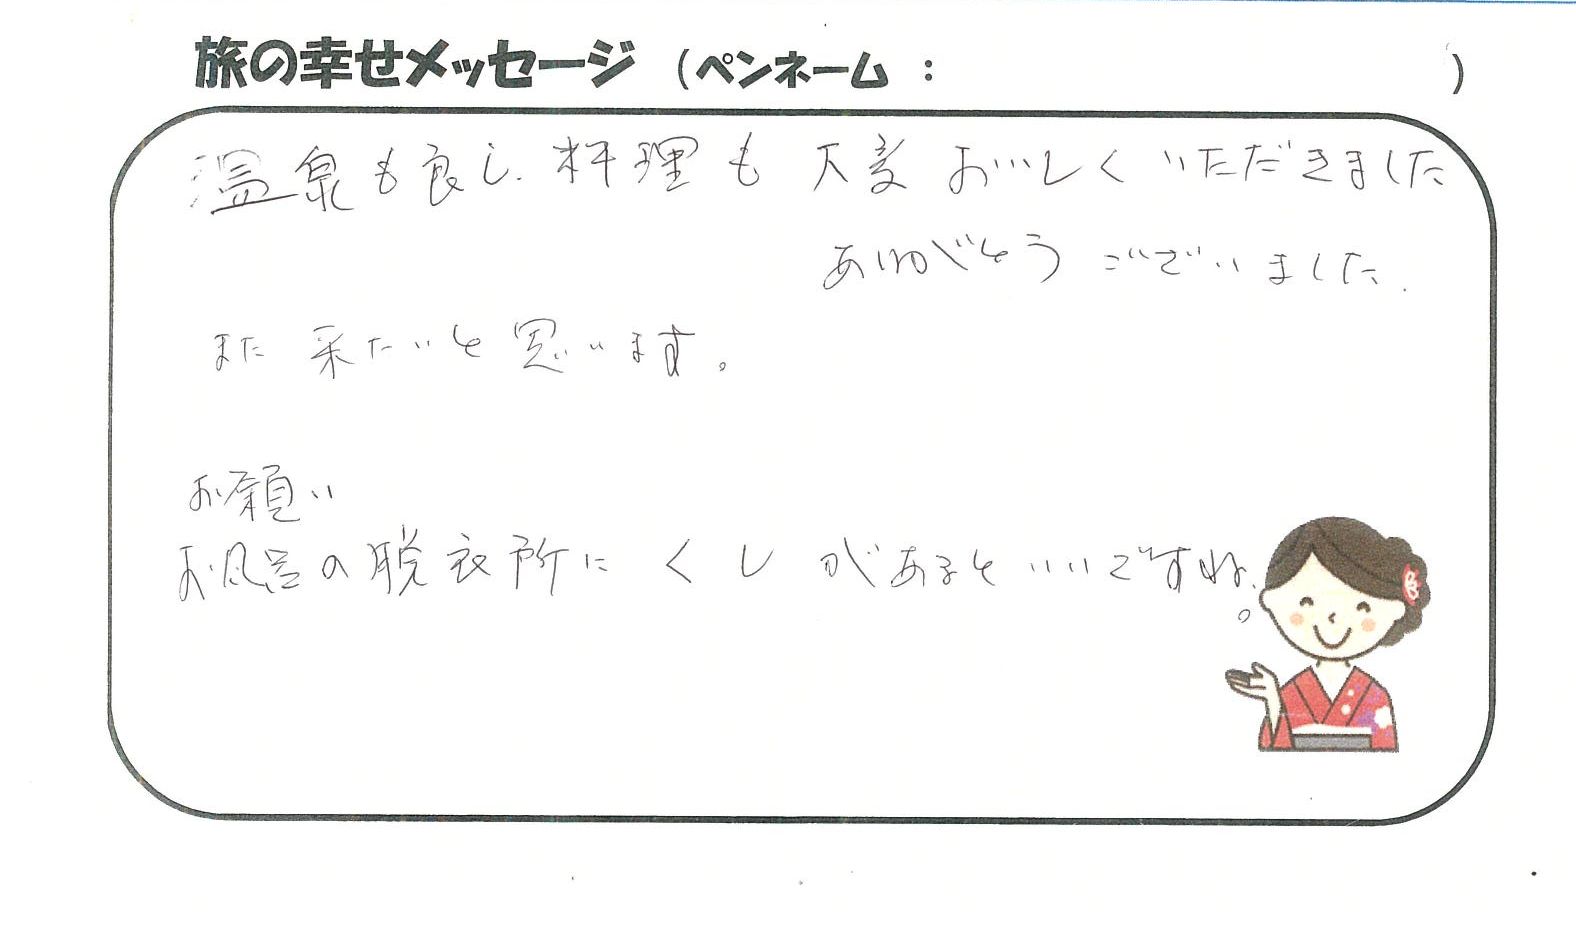 旅の幸せメッセージ (ペンネーム : )
温泉も良し、料理も 大変 おいしく いただきました
ありがとう ございました.
また 来たいと 思います。
お願い
お風呂の脱衣所に くし があると いいですね。